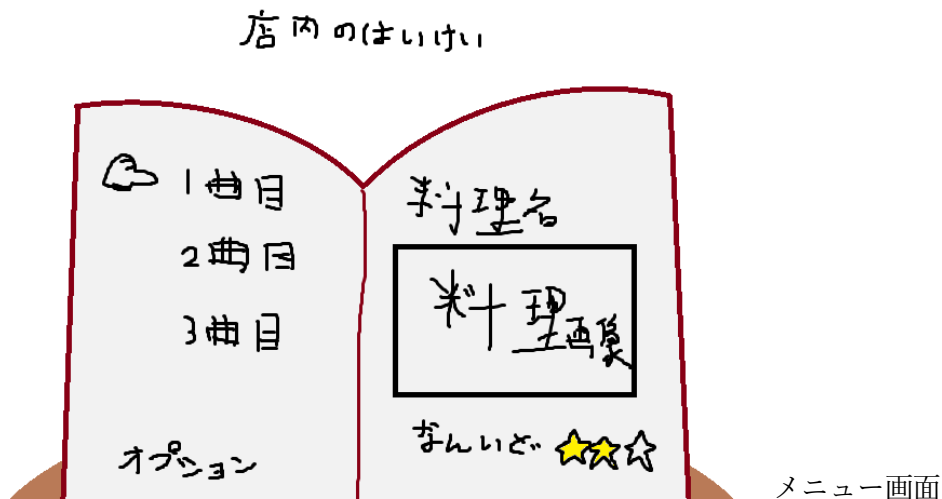 店内のはいけい
1曲目
2曲目
3曲目
オプション
料理名
料理画像
なんいど
メニュー画面